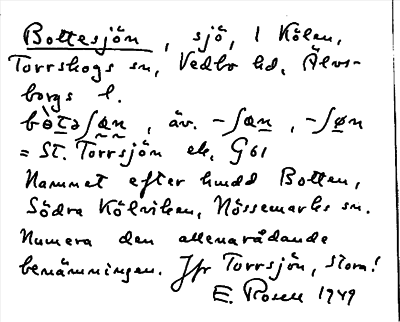 Bottesjön, sjö, i Kölen,
Torrskogs sn, Vedbo hd, Älvs-
borgs l.
bòtəʃæn, äv. -ʃæn, -ʃøn
= St. Torrsjön ek. G61
Namnet efter hmd Botten,
Södra Kölviken, Nössemarks sn.
Numera den allenarådande
benämningen. Jfr Torrsjön, Stora!
E. Rosell 1949